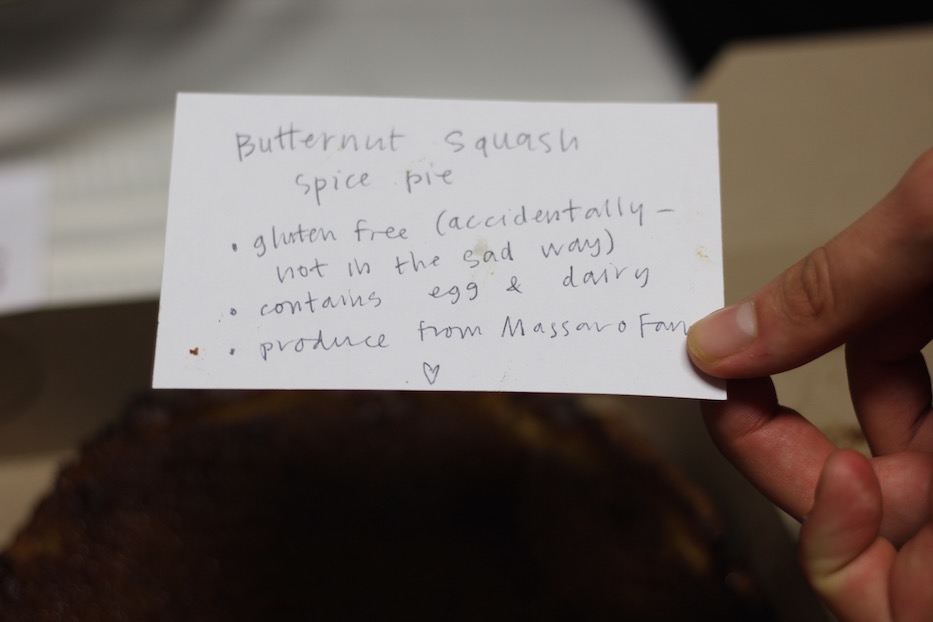 Butternut Squash
spice pie
• gluten free (accidentally –
not in the sad way)
• contains egg & dairy
• produce from Massaro
♡